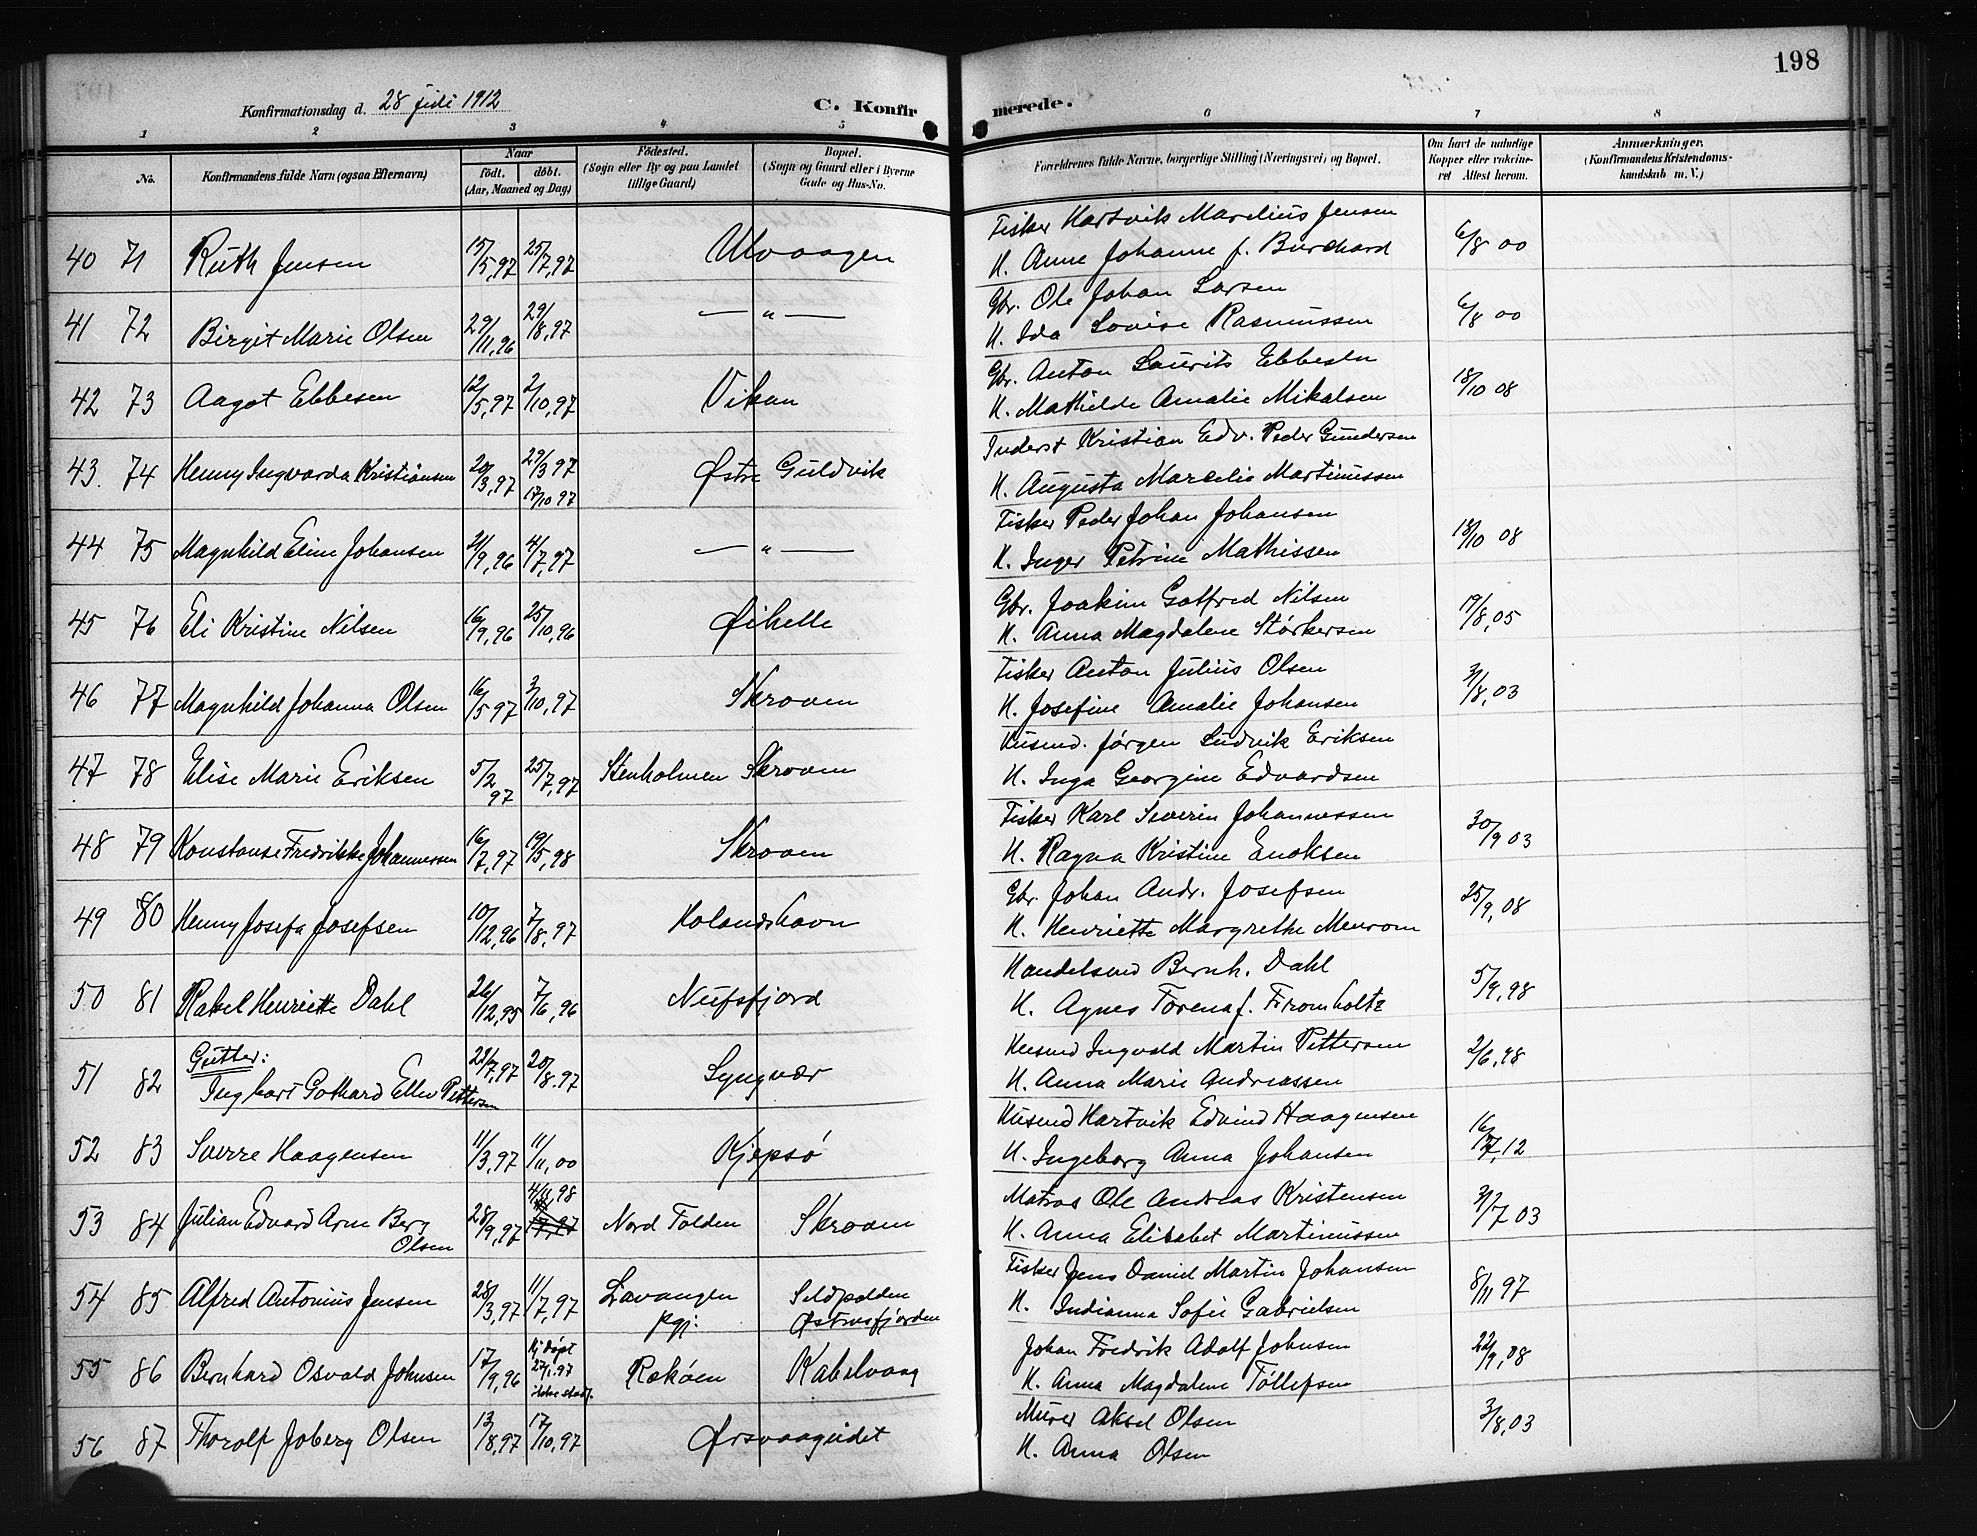 198
Konfirmationsdag d. 28 juli 1912
C. Konfirmerede.
1 2 3 4 5 6 7 8
No.
Konfirmandens fulde Navn (ogsaa Efternavn)
Naar
födt. döbt.
(Aar, Maaned og Dag)
Födested.
(Sogn eller By og paa Landet
tillige Gaard)
Bopæl.
(Sogn og Gaard eller i Byerne
Gade og Hus-No.
Forældrenes fulde Navne, borgerlige Stilling (Næringsvei) og Bopæl.
Om havt de naturlige
Kopper eller vaksine-
ret Attest herom.
Anmærkninger.
(Konfirmandens Kristendoms-
kundskab m. V.)
40 71 Ruth Jensen 15/5,97 25/7,97 Ulvaagen
Fisker Hartvik Marelius Jensen 6/8 00
H. Anne Johanne f. Burchard
41 72 Birgit Marie Olsen 29/11,96 29/8,97 — " —
Gbr. Ole Johan Larsen 6/8 00
H. Ida Lovise Rasmussen
42 73 Aagot Ebbesen 12/5,97 2/10,97 Vikan
Gbr. Anton Laurits Ebbesen 18/10 08
H. Mathilde Amalie Mikalsen
43. 74 Henny Ingvarda Kristiansen 20/3,97 29/3 97 17/10 97 Østre Guldvik
Inderst Kristian Edv. Peder Gundersen
H. Augusta Marcelie Martinussen
44 75 Magnhild Eline Johansen 21/9,96 4/7,97 — " —
Fisker Peder Johan Johansen 18/10 08
H. Inger Petrine Mathissen
45 76 Eli Kristine Nilsen 16/9,96 25/10,96 Øihelle
Gbr. Joakim Gotfred Nilsen 19/8,05
H. Anna Magdalene Størkersen
46 77 Magnhild Johanna Olsen 16/5 97 3/10,97 Skroven
Fisker Anton Julius Olsen 3/8,03
H. Josefine Amalie Johansen
47 78 Elise Marie Eriksen 5/2 97 25/7,97 Stenholmen Skroven
Husmd. Jørgen Ludvik Eriksen
H. Inga Georgine Edvardsen
48 79 Konstanse Fredrikke Johannessen 16/7,97 19/5,98 Skroven
Fisker Karl Severin Johannessen 30/9 03
H. Ragna Kristine Enoksen
49 80 Henny Josefa Josefsen 10/12,96 7/8,97 Holandshavn
Gbr. Johan Andr. Josefsen 25/9,08
H. Henriette Margrethe Menrom
50 81 Rakel Henriette Dahl 26/12,95 7/6,96 Nufsfjord
Handelsmd Bernh. Dahl 5/9,98
H. Agnes Torena f. Fromholtz
Gutter:
51 82 Ingbart Gothard Ellev Pettersen 28/7,97 20/8.97 Lyngvær
Husmd Ingvald Martin Pettersen 2/6,98
H. Anna Marie Andreassen
52 83 Sverre Haagensen 11/3,97 11/11,00 Kjepsø
Husmd Hartvik Edvind Haagensen 16/7,12
H. Ingeborg Anna Johansen
53 84 Julian Edvard Arne Berg Olsen 28/9,97 4/11,98 Nord Folden Skroven
Matros Ole Andreas Kristensen 3/7 03
H. Anna Elisabet Martinussen
54 85 Alfred Antonius Jensen 28/3,97 11/7,97 Lavangen pgj: Sildpolden Østnesfjorden
Fisker Jens Daniel Martin Johansen 8/11 97
H. Indianna Sofie Gabrielsen
55 86 Bernhard Osvald Johnsen 17/9,96 Hj døpt 27/1.97 Rekøen Kabelvaag
Johan Fredrik Adolf Johnsen 22/9,08
H. Anna Magdalene Tollefsen
56 87 Thorolf Joberg Olsen 13/8,97 17/10,97 Ørsvaageidet
Murer Aksel Olsen 3/8,03
H. Anna Olsen